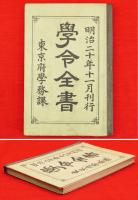 明治二十年十一月刊行
學令全書
東京府學務課